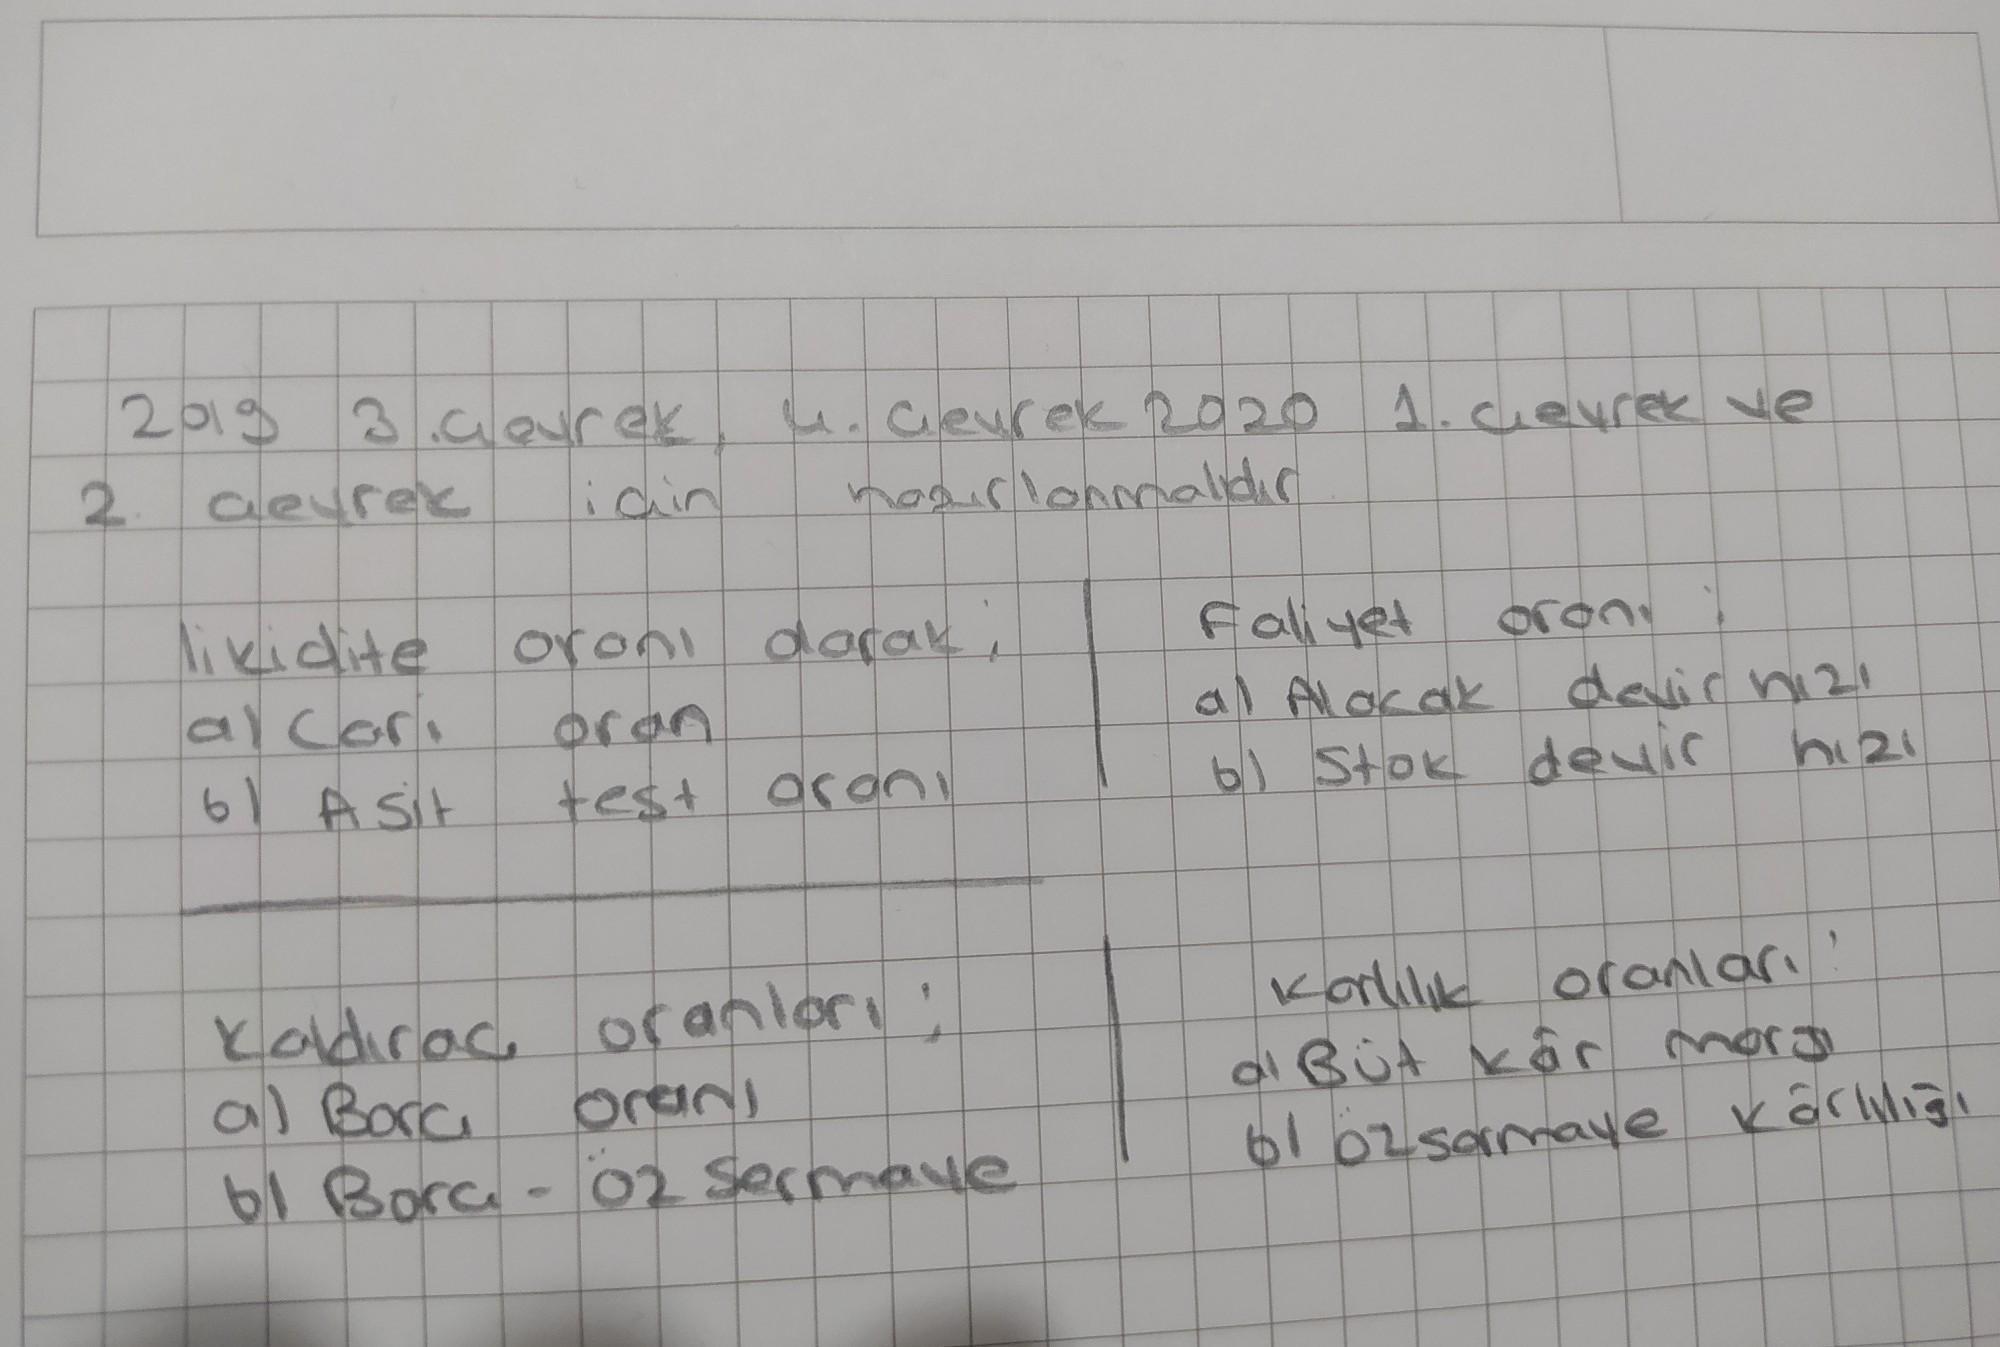 2019 3.çeyrek, 4. çeyrek 2020 1. çeyrek ve
2. çeyrek için hazırlanmalıdır
likidite oranı darak;
a) Cari oran
b) Asit test oranı
Faliyet oranı;
a) Alacak devir hızı
b) Stok devir hızı
Kaldıraç oranları;
a) Borç oranı
b) Borç - öz sermaye
Karlılık oranları;
a) Büt kâr marjı
b) özsarmaye kârlılığı